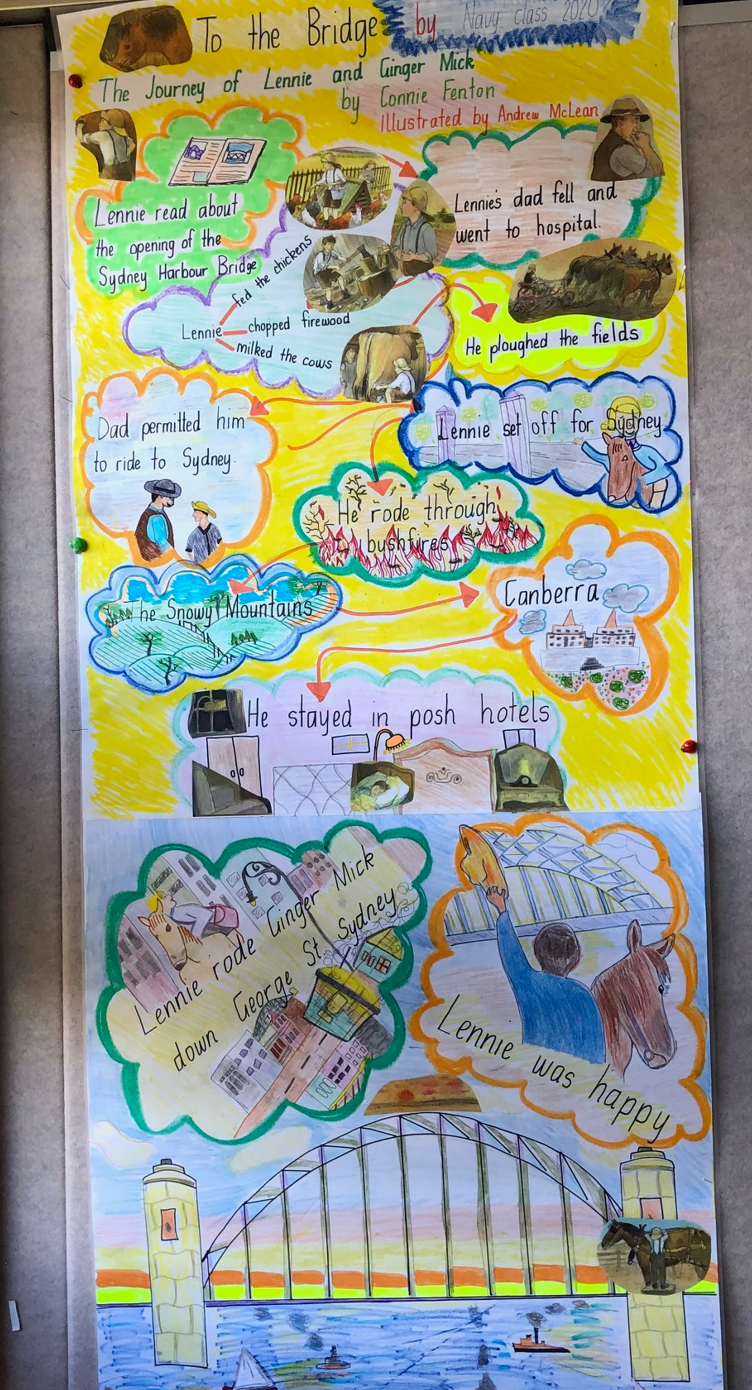 To the Bridge by Navy class 2020
The Journey of Lennie and Ginger Mick
by Connie Fenton
Illustrated by Andrew McLean
Lennie read about
the opening of the
Sydney Harbour Bridge
Lennie's dad fell and
went to hospital.
Lennie
fed the chickens
chopped firewood
milked the cows
He ploughed the fields
Dad permitted him
to ride to Sydney.
Lennie set off for Sydney
He rode through
bushfires
The Snowy Mountains
Canberra
He stayed in posh hotels
Lennie rode Ginger Mick
down George St. Sydney
Lennie was happy